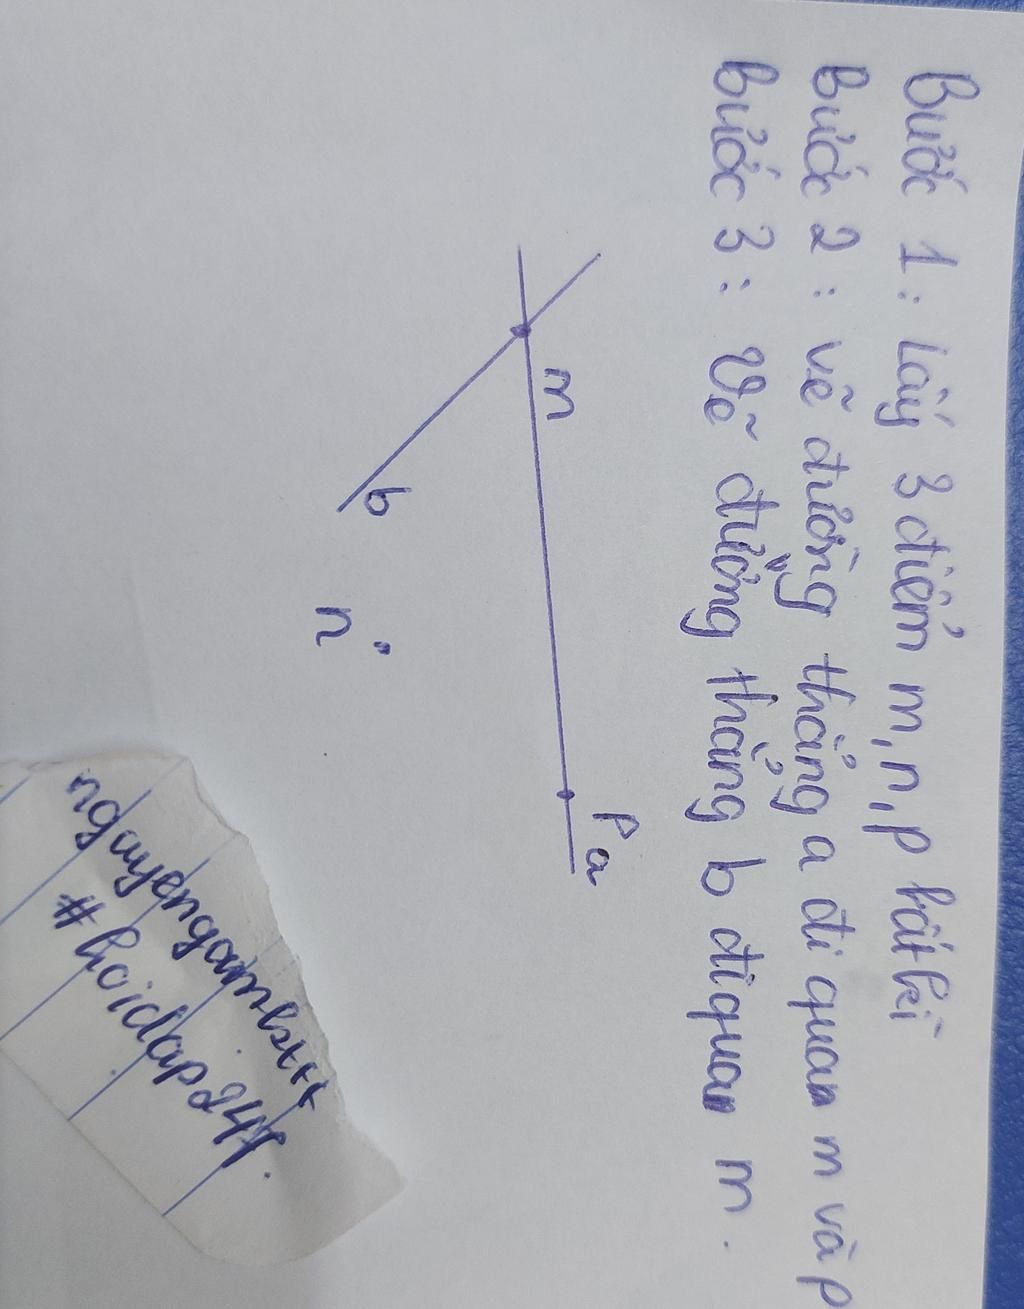 Bước 1: Lấy 3 điểm m, n, p bất kì
Bước 2: vẽ đường thẳng a đi quan m và p
Bước 3: Vẽ đường thẳng b đi quan m.
m
p
a
b
n
#hoidap247.